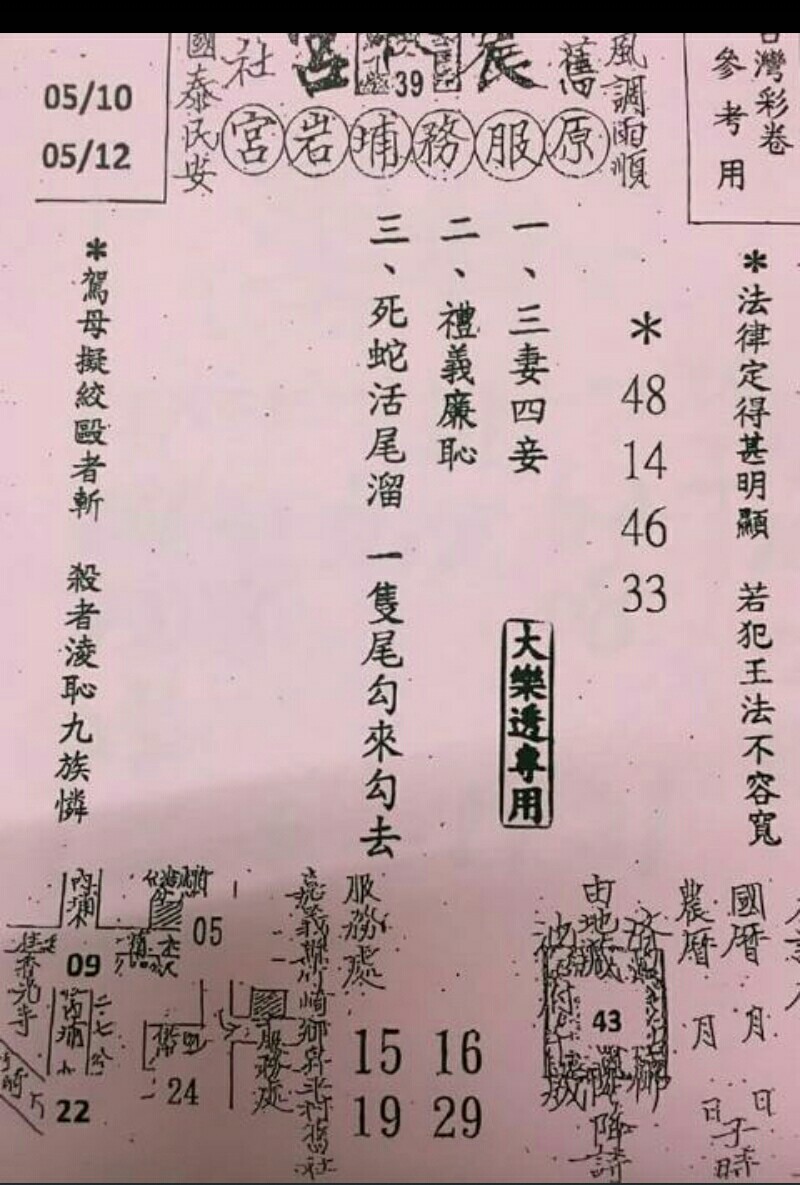 台灣彩卷
參考用
風調雨順
舊
39
社
國泰民安
原服務埔岩宮
05/10
05/12
*法律定得甚明顯 若犯王法不容寬
*
48
14
46
33
一、三妻四妾
大樂透專用
二、禮義廉恥
三、死蛇活尾溜 一隻尾勾來勾去
*駕母擬絞毆者斬 殺者淩恥九族憐
國曆 月 日
農曆 月 日子時
43
降詩
服務處
15 16
19 29
內埔
05
09
內埔
24
服務處
22